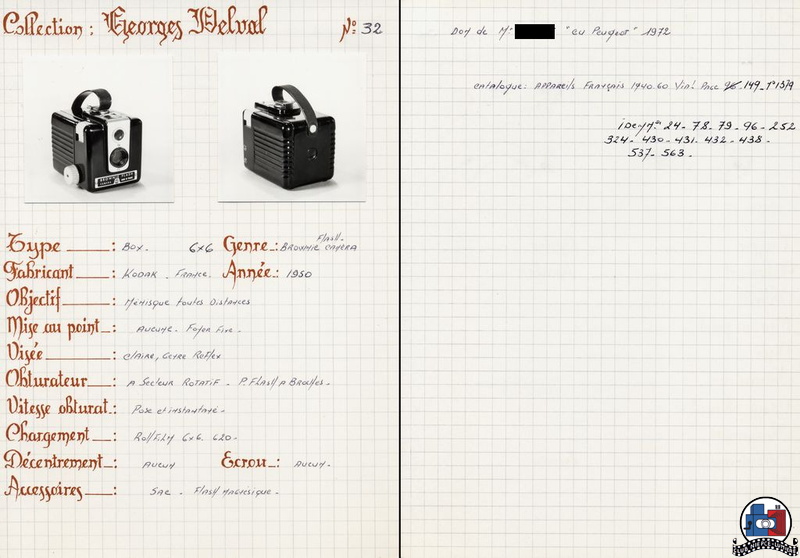 Collection : Georges Delval Nº 32
Type : Box. 6x6 Genre : Brownie Flash. Camera
Fabricant : Kodak. France. Année : 1950
Objectif : Ménisque toutes distances
Mise au point : Aucune. Foyer Fixe.
Visée : claire, Genre Reflex
Obturateur : A Secteur Rotatif - P. Flash A Broches.
Vitesse obturat. : Pose et instantané.
Chargement : Roll Film 6x6. 620.
Décentrement : Aucun Ecrou : Aucun.
Accessoires : Sac. Flash magnésique.
Don de Mr "Cu Peugeot" 1972
catalogue: Appareils Français 1940.60 Vial Page 149
iDem nº 24 - 78 - 79 - 96 - 252
324 - 430 - 431 - 432 - 438 -
537 - 563 .